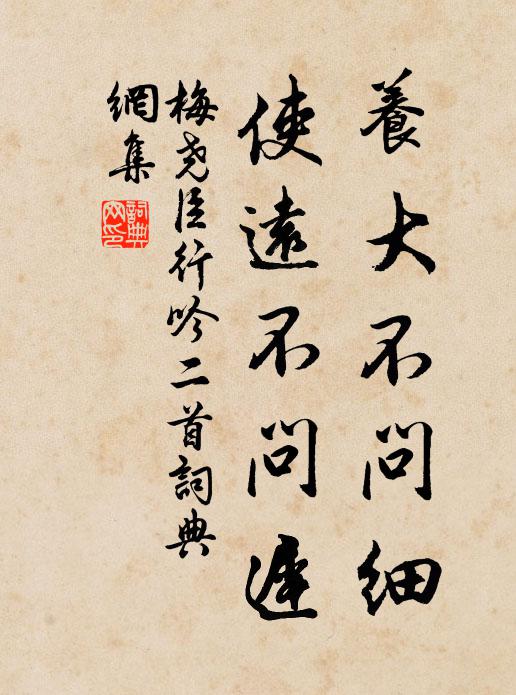 養大不問細
使遠不問遲
梅尧臣行吟二首詞典
網集
詞典
网印